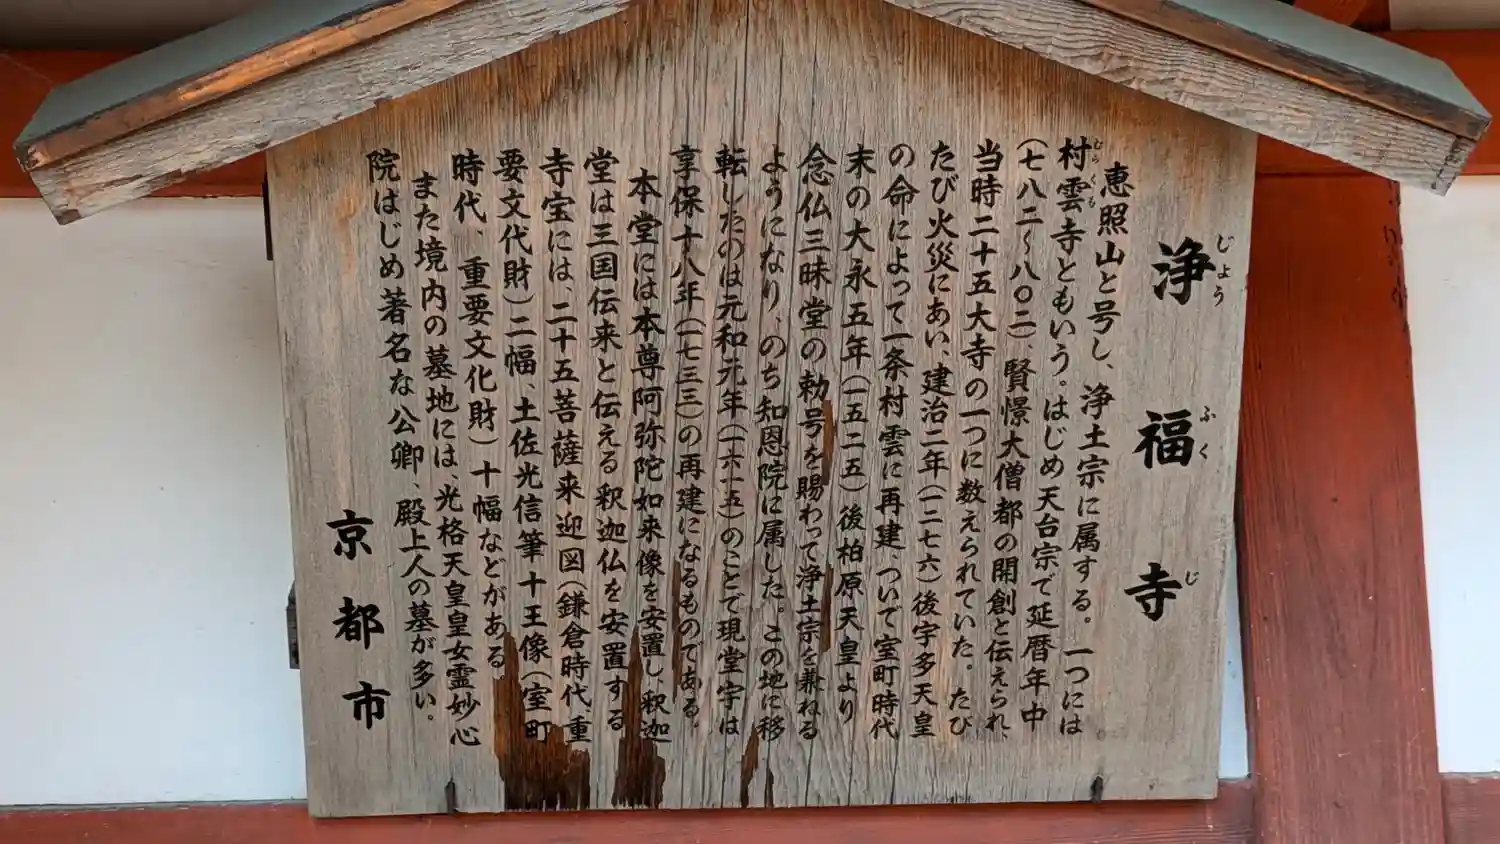 浄福寺
じょうふくじ
恵照山と号し、浄土宗に属する。一つには
村雲寺ともいう。はじめ天台宗で延暦年中
むらくも
(七八二〜八〇二)、賢憬大僧都の開創と伝えられ、
当時二十五大寺の一つに数えられていた。たび
たび火災にあい、建治二年(一二七六)後宇多天皇
の命によって一条村雲に再建、ついで室町時代
末の大永五年(一五二五)後柏原天皇より
念仏三昧堂の勅号を賜わって浄土宗を兼ねる
ようになり、のち知恩院に属した。この地に移
転したのは元和元年(一六一五)のことで現堂宇は
享保十八年(一七三三)の再建になるものである。
本堂には本尊阿弥陀如来像を安置し、釈迦
堂は三国伝来と伝える釈迦仏を安置する
寺宝には、二十五菩薩来迎図(鎌倉時代、重
要文代財)二幅、土佐光信筆十王像(室町
時代、重要文化財)十幅などがある
また境内の墓地には、光格天皇皇女霊妙心
院はじめ著名な公卿、殿上人の墓が多い。
京都市